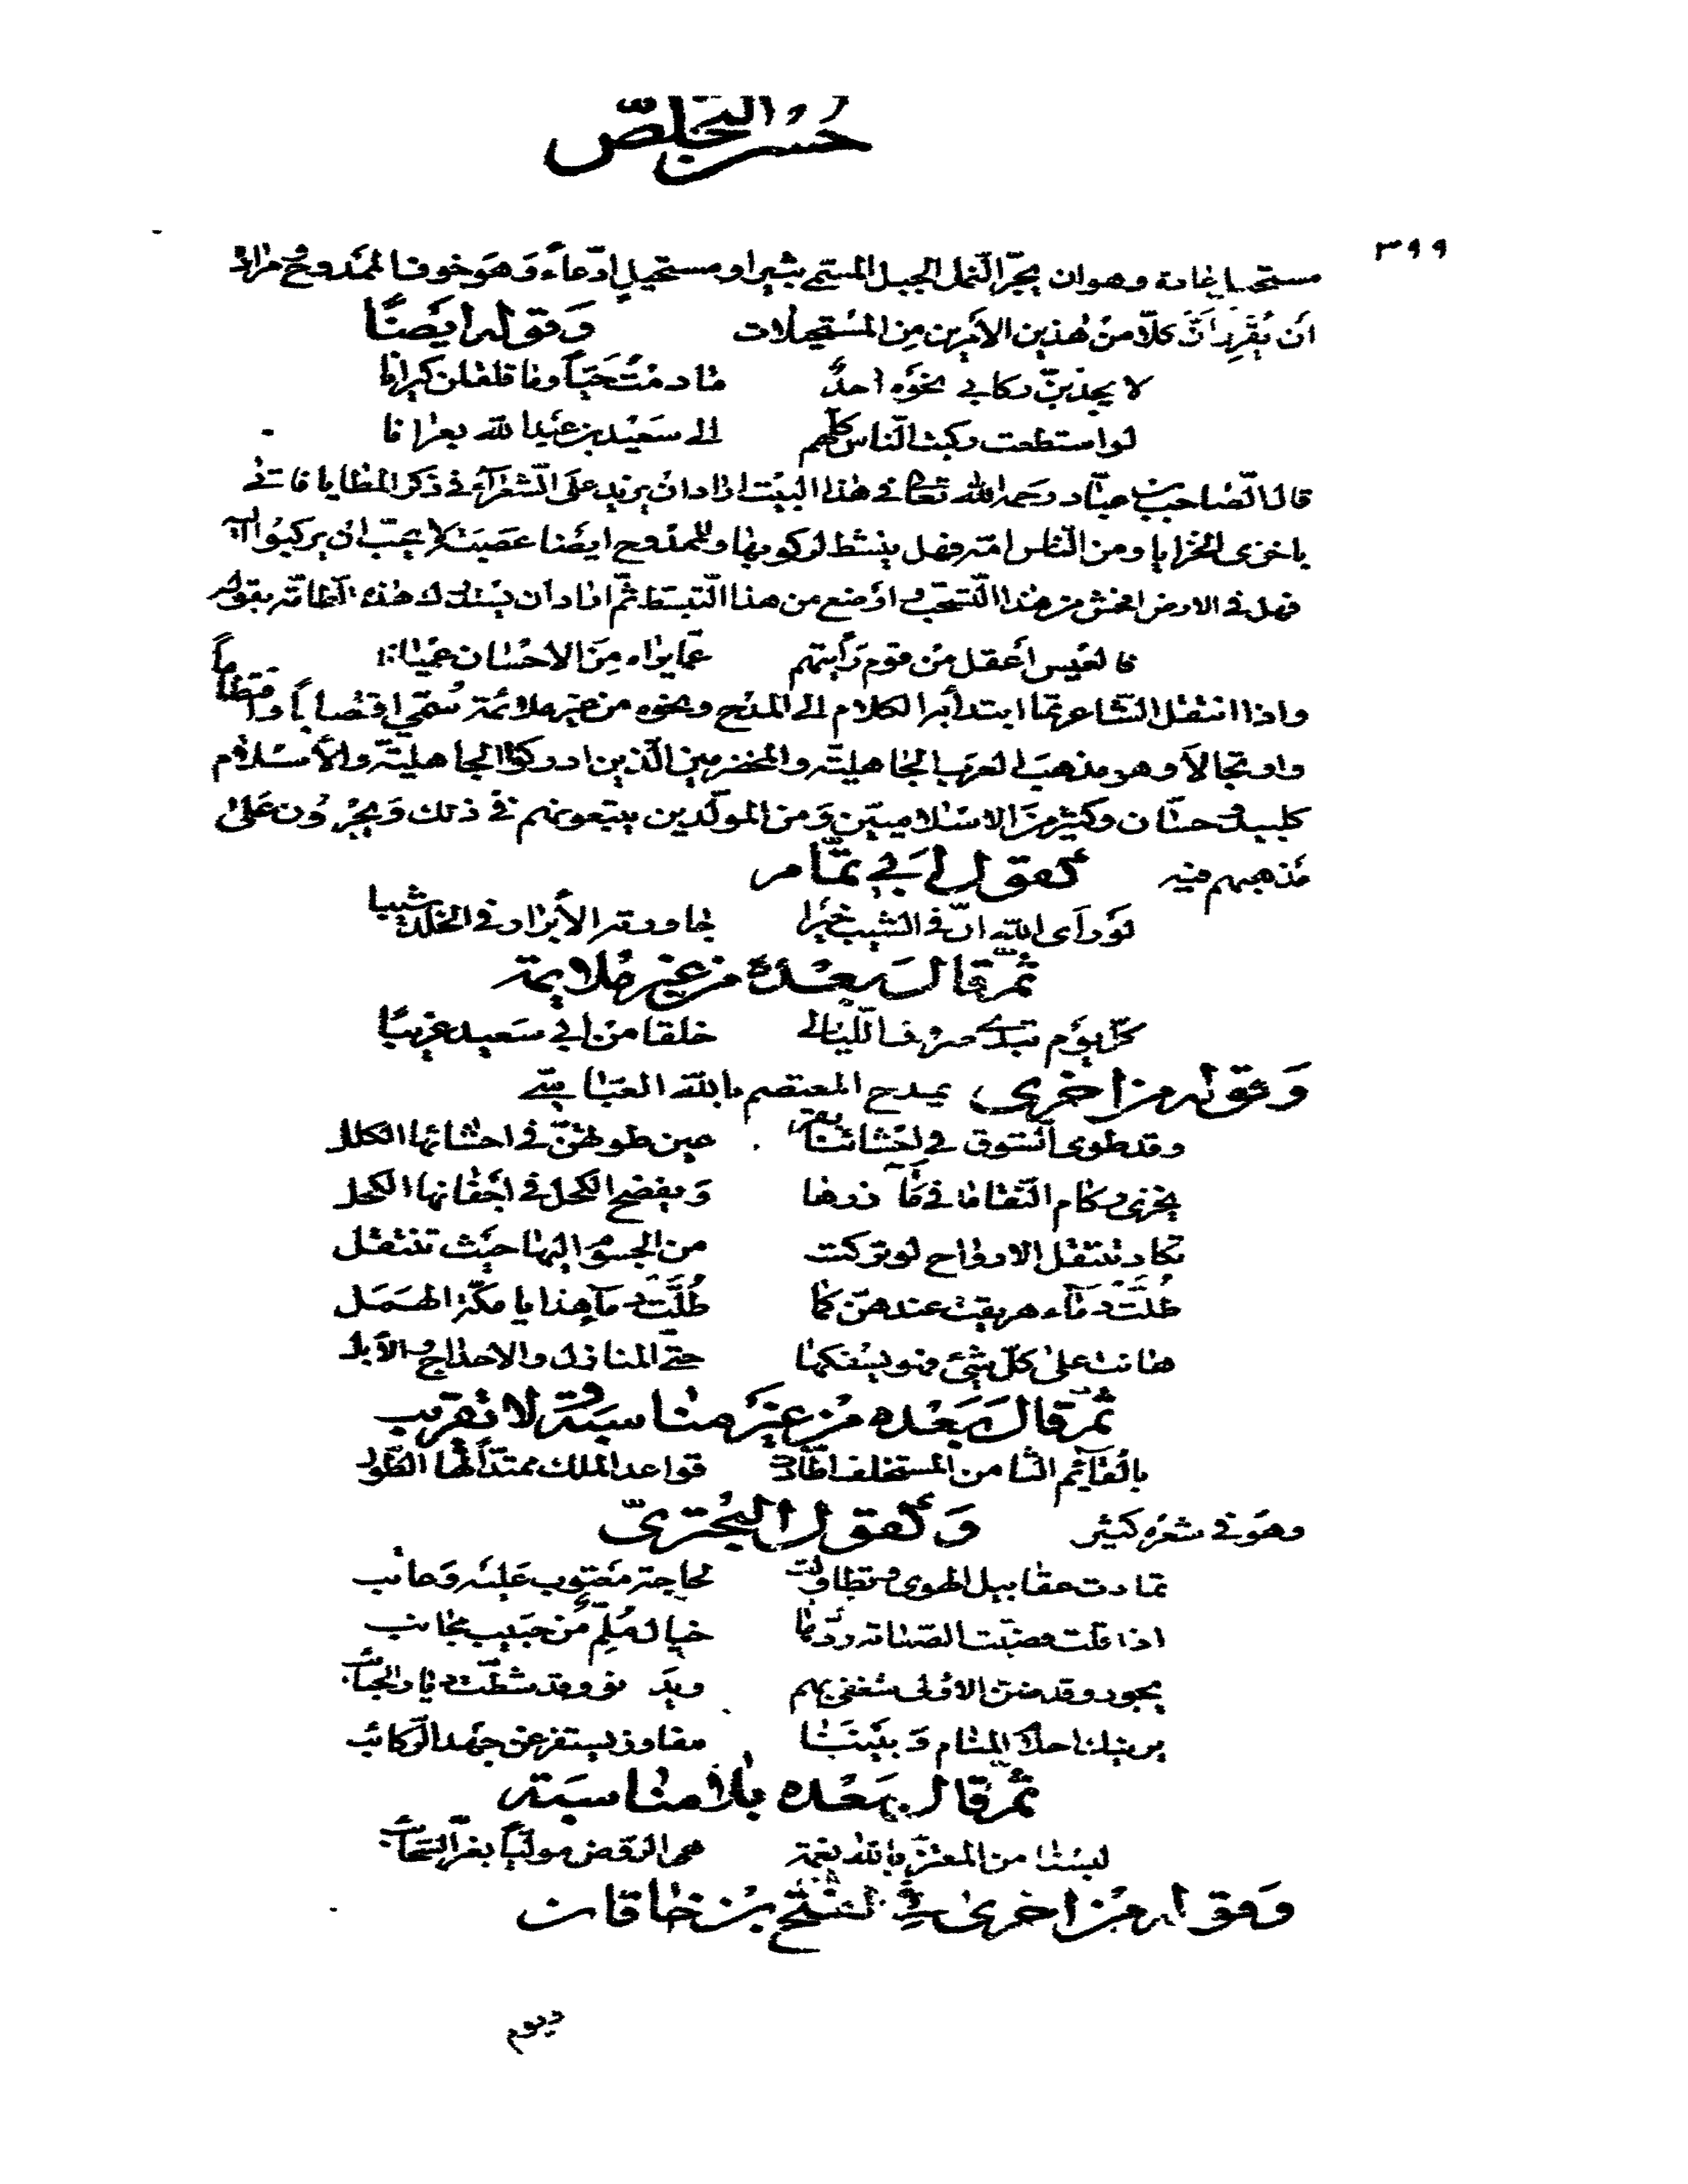 حُسْن التخلّص
٣٩٩
مستحيل عادة وهو ان يجرّ النمل الجبل المسمى بثبير او مستحيل ادّعاءً وَهوَ خوف الممَدوح مرادٌ
أن يُقرِرَ أنّ كلّا منْ هٰذين الاَمرين مِن المسْتحيلات وَقوله ايضًا
لا يجذبنّ ركابي نحوَه احدٌ ما دمْتُ حَيّاً وما قلقلن كيرانا
لو استطعت ركبت الناس كلّهم الى سَعيْد بن عَبْد الله بعرانا
قال الصّاحب بن عبّاد رحمه الله تعالى في هٰذا البيْت اراد ان يزيد علَى الشعَرآء في ذكر المطايا فاتى
باخزى الخزايا ومن الناس امّه فهل ينشط لركوبها وللممدوح ايضا عصبَة لا يحبّ ان يركبُوا اليه
فهل في الارض افحش من هٰذا التسحّب واوضع من هذا التبسّط ثمّ اراد ان يستدرك هٰذه الطامّة بقوله
فالعيس أعقل من قوم رَأيتهم عمّا يراه مِنَ الاحْسان عُميٰانا
واذا انتقل الشّاعر ممّا ابتدأ به الكلام الى المدْح ونحوه من غير ملائمة سُمّي اقتضاباً واقتطاعاً
وارتجالاً وهو مذهب العرَب الجاهليّة والمخضرمين الّذين ادركوا الجاهليّة والأسْلام
كلبيد وحسّان وكثير مِن الاسْلاميين وَمن المولّدين يتبعونهم في ذلك وَيجْرُون عَلى
مَذهبهم فيه كقول أبي تمّام
لوْ رأى الله انّ في الشيب خيْرا جاورته الأبرار في الخلد شيبا
ثمّ قال بَعْدهُ من غير مُلايمة
كلّ يوْم تبدى صروف اللّيالى خلقا منْ ابي سَعيد غريبًا
وَقوله من اخرى يمدح المعتصم بالله العبّاسيّ
وقد طوى الشوق في احْشائنا بقر عين طوتهنّ في احشائها الكلل
يخزى ركام النقا ما في مآزرها وَيفضح الكحل في اجْفانها الكحل
تكاد تنتقل الارواح لو تركت من الجسوم اليها حيْث تنتقل
طُلَّتْ دمَآء هريقت عندهنّ كما طُلَّتْ دمآء هدايا مكّة الهَمَل
هانت على كلّ شيْئ فهو يسْفكها حتّى المنازل والاحداج والاَبل
ثمّ قال بَعْده مِن غيْر مناسبَة ولا تقريب
بالقآئم الثامن المستخلف اطّأدت قواعد الملك ممتدّاً لها الطّول
وهوَ في شعرْه كثير وَكقول البُحْترىّ
تمادت عقابيل الهوى وتطاولت لجاجة مَعْتوب عَليْه وَعاتب
اذا قلت قضيّت الصّبابة ردّها خيال مُلِمٌ منْ حَبيب مجانب
يجود وقد ضنّ الاولى شغفى بهم ويدنو وقد شطّت ديار الحبائب
يرينيك احلام المنام وَبيْننَا مفاوز يستفرغن جهْد الرّكائب
ثمّ قال بَعْده بلا مناسبَة
لبسْنا من المعتزّ بالله نعمة هى الرّوض موليّاً بغرّ السّحائب
وَقوله مِن اخرىٰ في الفتْح بْن خاقان
ديوم